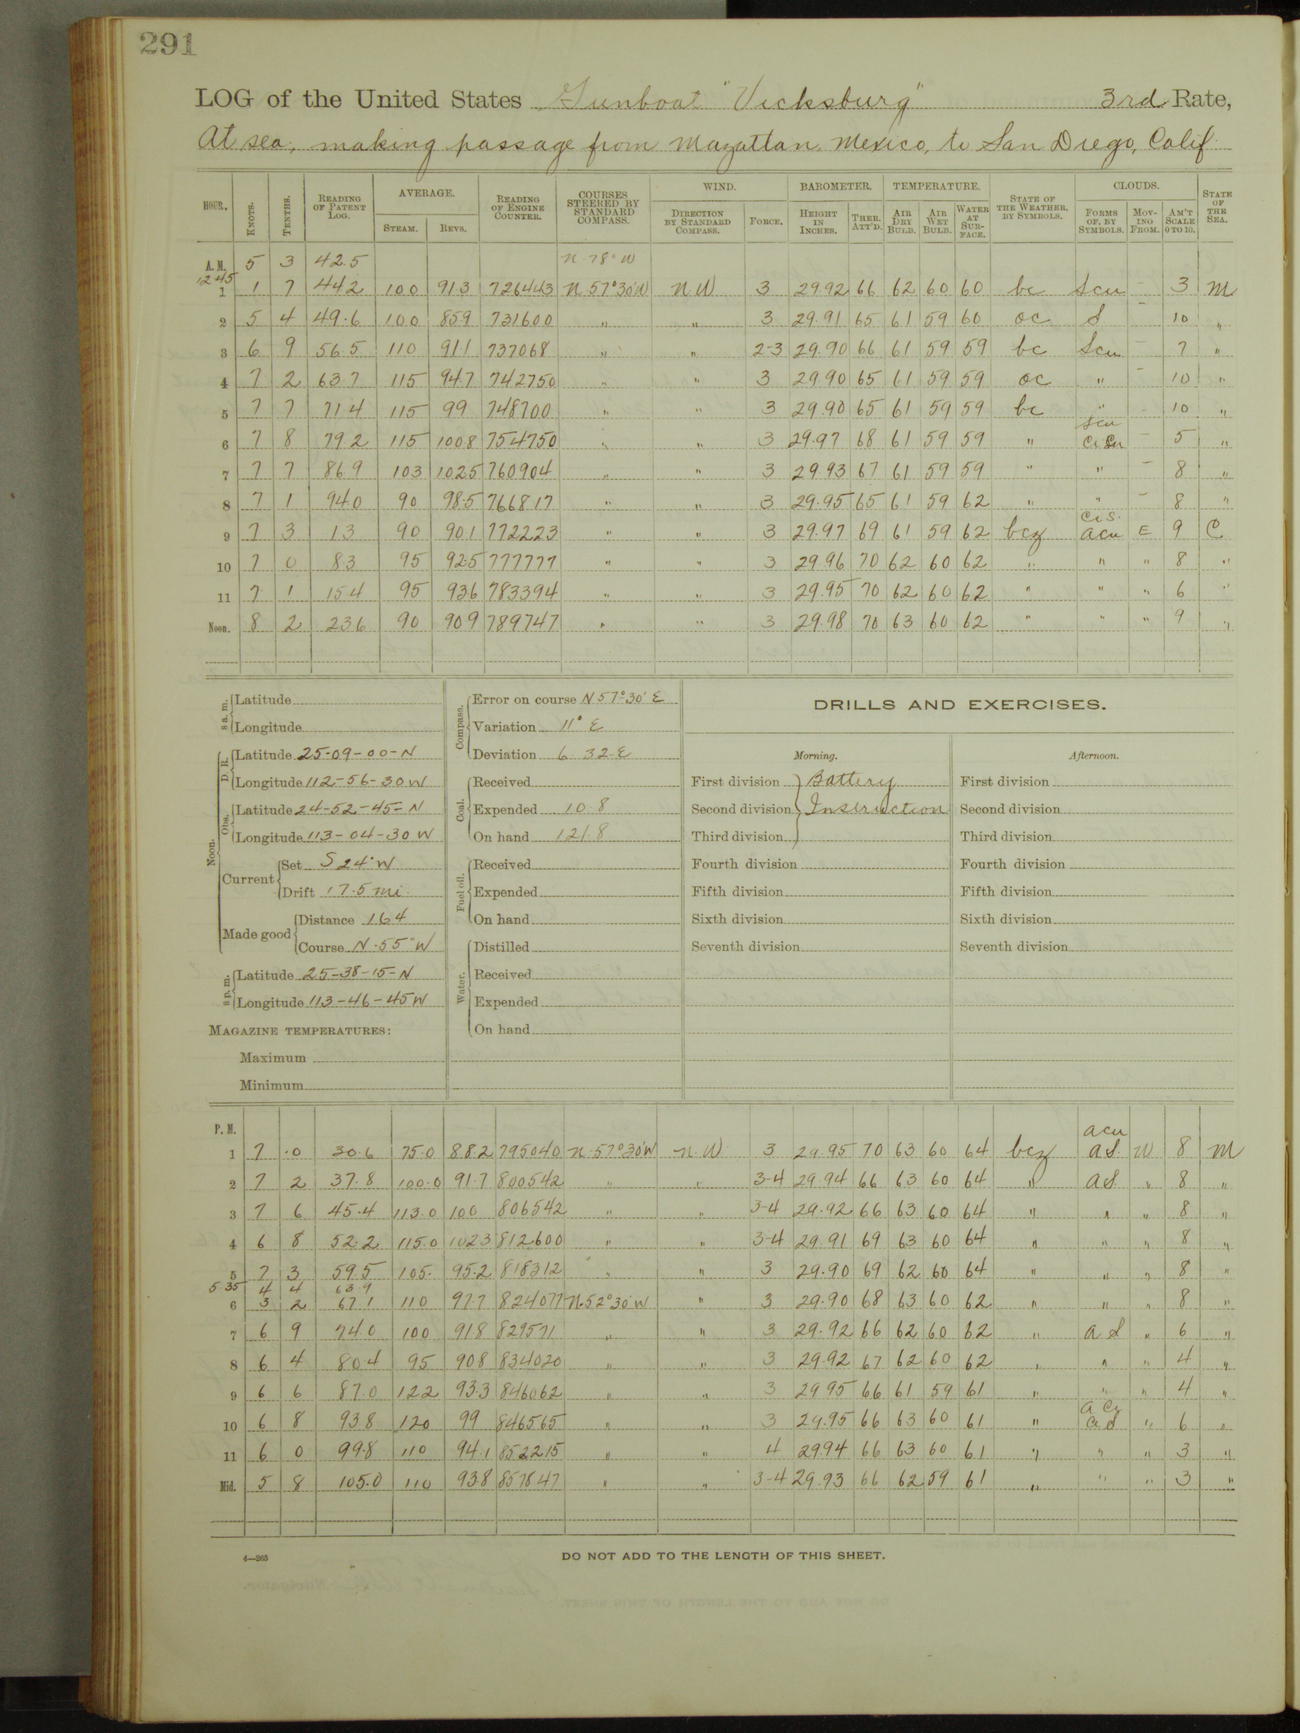 291
LOG of the United States Gunboat "Vicksburg" 3rd Rate,
At sea, making passage from Mazatlan, Mexico, to San Diego, Calif.
HOUR. KNOTS. TENTHS. READING OF PATENT LOG. AVERAGE. STEAM. REVS. READING OF ENGINE COUNTER. COURSES STEERED BY STANDARD COMPASS. WIND. DIRECTION BY STANDARD COMPASS. FORCE. BAROMETER. HEIGHT IN INCHES. THER. ATT'D. TEMPERATURE. AIR DRY BULB. AIR WET BULB. WATER AT SURFACE. STATE OF THE WEATHER, BY SYMBOLS. CLOUDS. FORMS OF, BY SYMBOLS. MOVING FROM. AM'T SCALE 0 TO 10. STATE OF THE SEA.
A.M. 12 45 5 3 42.5 N 78° W
1 1 7 44.2 100 91.3 726443 N 57°30'W NW 3 29.92 66 62 60 60 bc Scu - 3 M
2 5 4 49.6 100 85.9 731600 " " 3 29.91 65 61 59 60 oc S - 10 "
3 6 9 56.5 110 91.1 737068 " " 2-3 29.90 66 61 59 59 bc Scu - 7 "
4 7 2 63.7 115 94.7 742750 " " 3 29.90 65 61 59 59 oc " - 10 "
5 7 7 71.4 115 99 748700 " " 3 29.90 65 61 59 59 bc " - 10 "
6 7 8 79.2 115 100.8 754750 " " 3 29.97 68 61 59 59 " Scu - 5 "
7 7 7 86.9 103 102.5 760904 " " 3 29.93 67 61 59 59 " " - 8 "
8 7 1 94.0 90 98.5 766817 " " 3 29.95 65 61 59 62 " " - 8 "
9 7 3 1.3 90 90.1 772223 " " 3 29.97 69 61 59 62 bcz Ci S. Acu E 9 C
10 7 0 8.3 95 92.5 777777 " " 3 29.96 70 62 60 62 " " " 8 "
11 7 1 15.4 95 93.6 783394 " " 3 29.95 70 62 60 62 " " " 6 "
Noon. 8 2 23.6 90 90.9 789747 " " 3 29.98 70 63 60 62 " " " 9 "
8 a.m. Latitude
Longitude
Noon. D. R. Latitude 25-09-00-N
Longitude 112-56-30 W
Obs. Latitude 24-52-45-N
Longitude 113-04-30 W
Current Set S 24° W
Drift 17.5 mi.
Made good Distance 164
Course N-55° W
8 p.m. Latitude 25-38-15-N
Longitude 113-46-45 W
MAGAZINE TEMPERATURES:
Maximum
Minimum
Compass. Error on course N 57°30' E
Variation 11° E
Deviation 6 32-E
Coal. Received
Expended 10.8
On hand 121.8
Fuel oil. Received
Expended
On hand
Water. Distilled
Received
Expended
On hand
DRILLS AND EXERCISES.
Morning.
First division Battery
Second division Instruction
Third division
Fourth division
Fifth division
Sixth division
Seventh division
Afternoon.
First division
Second division
Third division
Fourth division
Fifth division
Sixth division
Seventh division
P. M.
1 7 .0 30.6 75.0 88.2 795040 N-57°30'W N.W. 3 29.95 70 63 60 64 bcz acu a S. W 8 M
2 7 2 37.8 100.0 91.7 800542 " " 3-4 29.94 66 63 60 64 " a S " 8 "
3 7 6 45.4 113.0 100 806542 " " 3-4 29.92 66 63 60 64 " " " 8 "
4 6 8 52.2 115.0 102.3 812600 " " 3-4 29.91 69 63 60 64 " " " 8 "
5 7 3 59.5 105. 95.2 818312 " " 3 29.90 69 62 60 64 " " " 8 "
5 35 4 4 63.9
6 3 2 67.1 110 97.7 824077 N-52°30'W " 3 29.90 68 63 60 62 " " " 8 "
7 6 9 74.0 100 91.8 829571 " " 3 29.92 66 62 60 62 " a S " 6 "
8 6 4 80.4 95 90.8 834020 " " 3 29.92 67 62 60 62 " " " 4 "
9 6 6 87.0 122 93.3 846062 " " 3 29.95 66 61 59 61 " " " 4 "
10 6 8 93.8 120 99 846565 " " 3 29.95 66 63 60 61 " " 6 "
11 6 0 99.8 110 94.1 852215 " " 4 29.94 66 63 60 61 " " " 3 "
Mid. 5 8 105.0 110 93.8 857847 " " 3-4 29.93 66 62 59 61 " " " 3 "
4—265
DO NOT ADD TO THE LENGTH OF THIS SHEET.